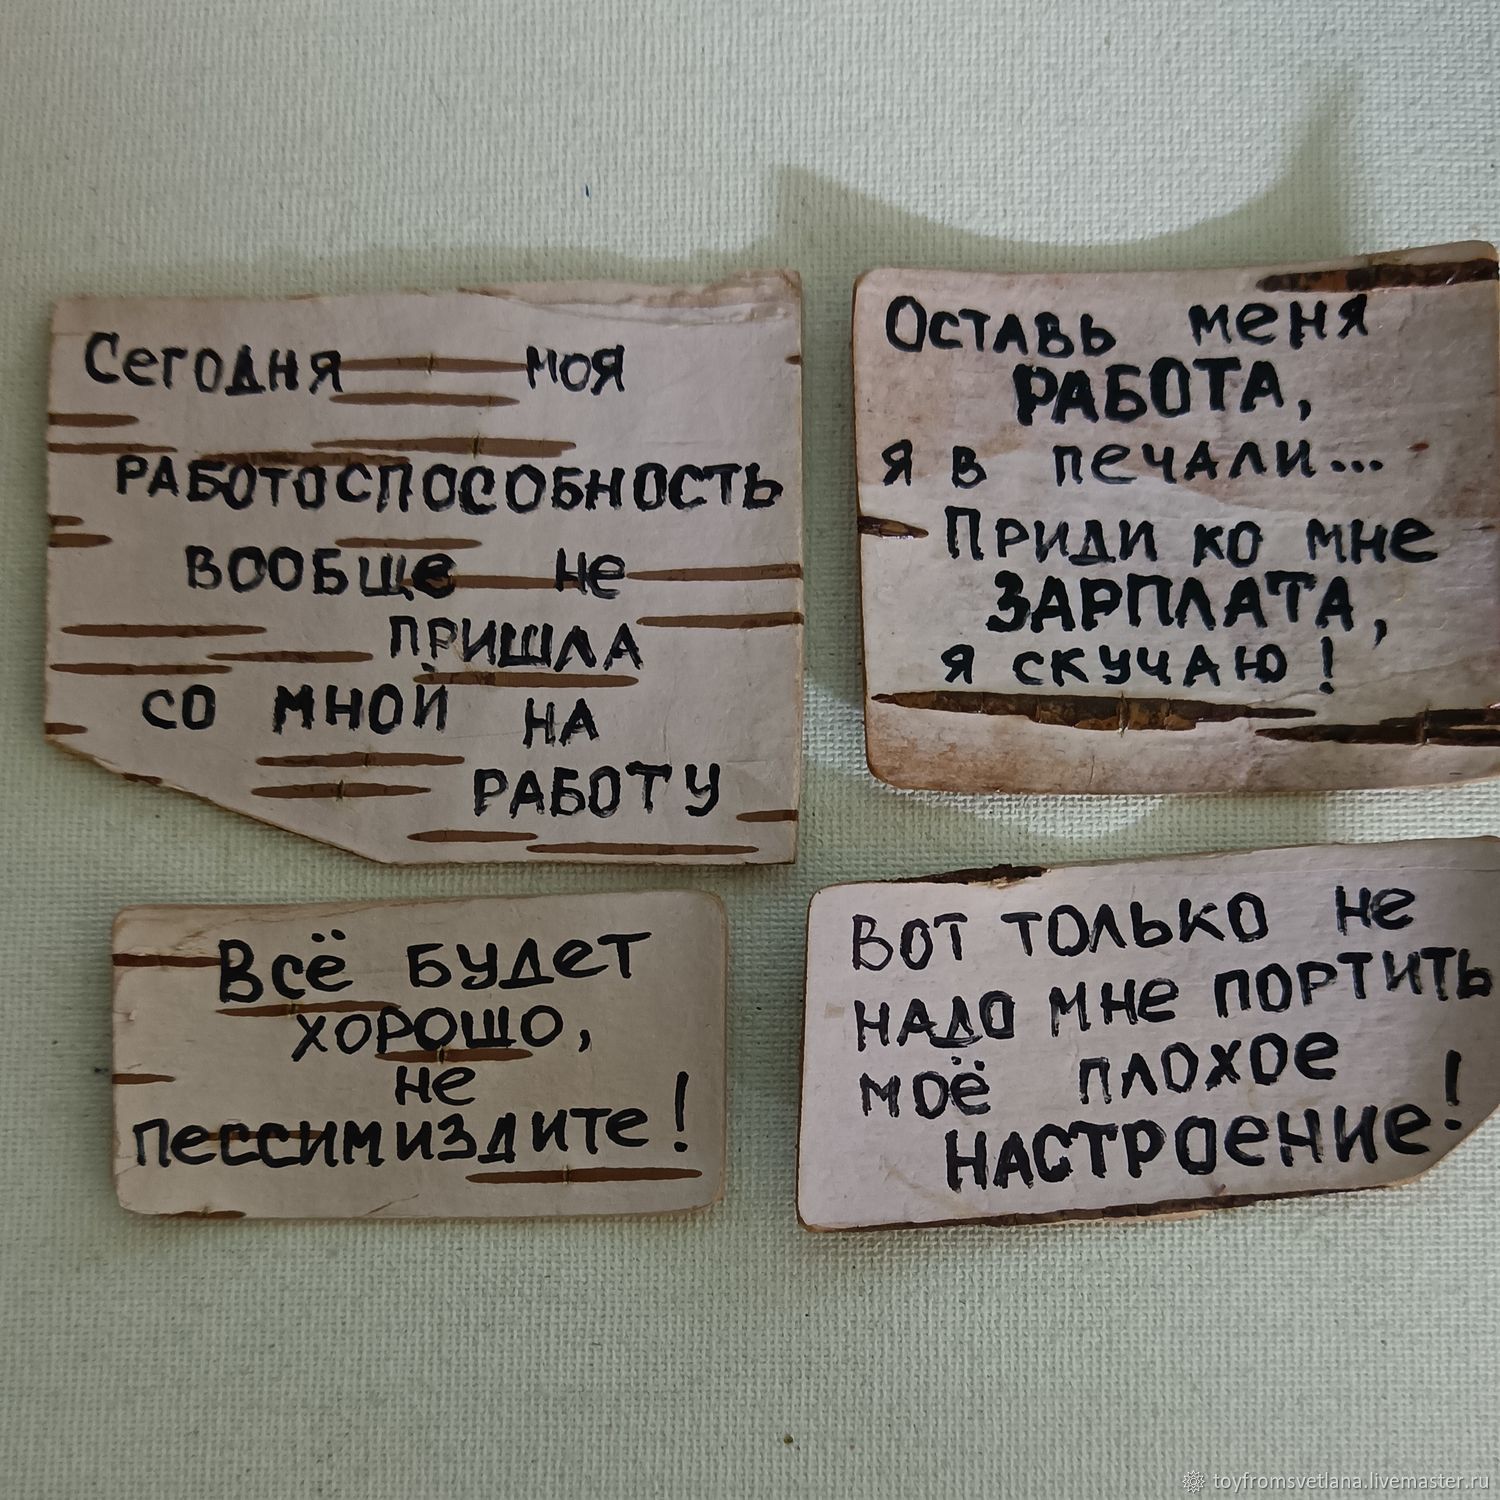 Сегодня моя
РАБОТОСПОСОБНОСТЬ
ВООБЩЕ НЕ
ПРИШЛА
СО МНОЙ НА
РАБОТУ
Оставь меня
РАБОТА,
Я В ПЕЧАЛИ...
ПРИДИ КО МНЕ
ЗАРПЛАТА,
Я СКУЧАЮ!
Всё БУДЕТ
ХОРОШО,
НЕ
ПЕССИМИЗДИТЕ!
ВОТ ТОЛЬКО НЕ
НАДО МНЕ ПОРТИТЬ
МОЁ ПЛОХОЕ
НАСТРОЕНИЕ!
toyfromsvetlana.livemaster.ru